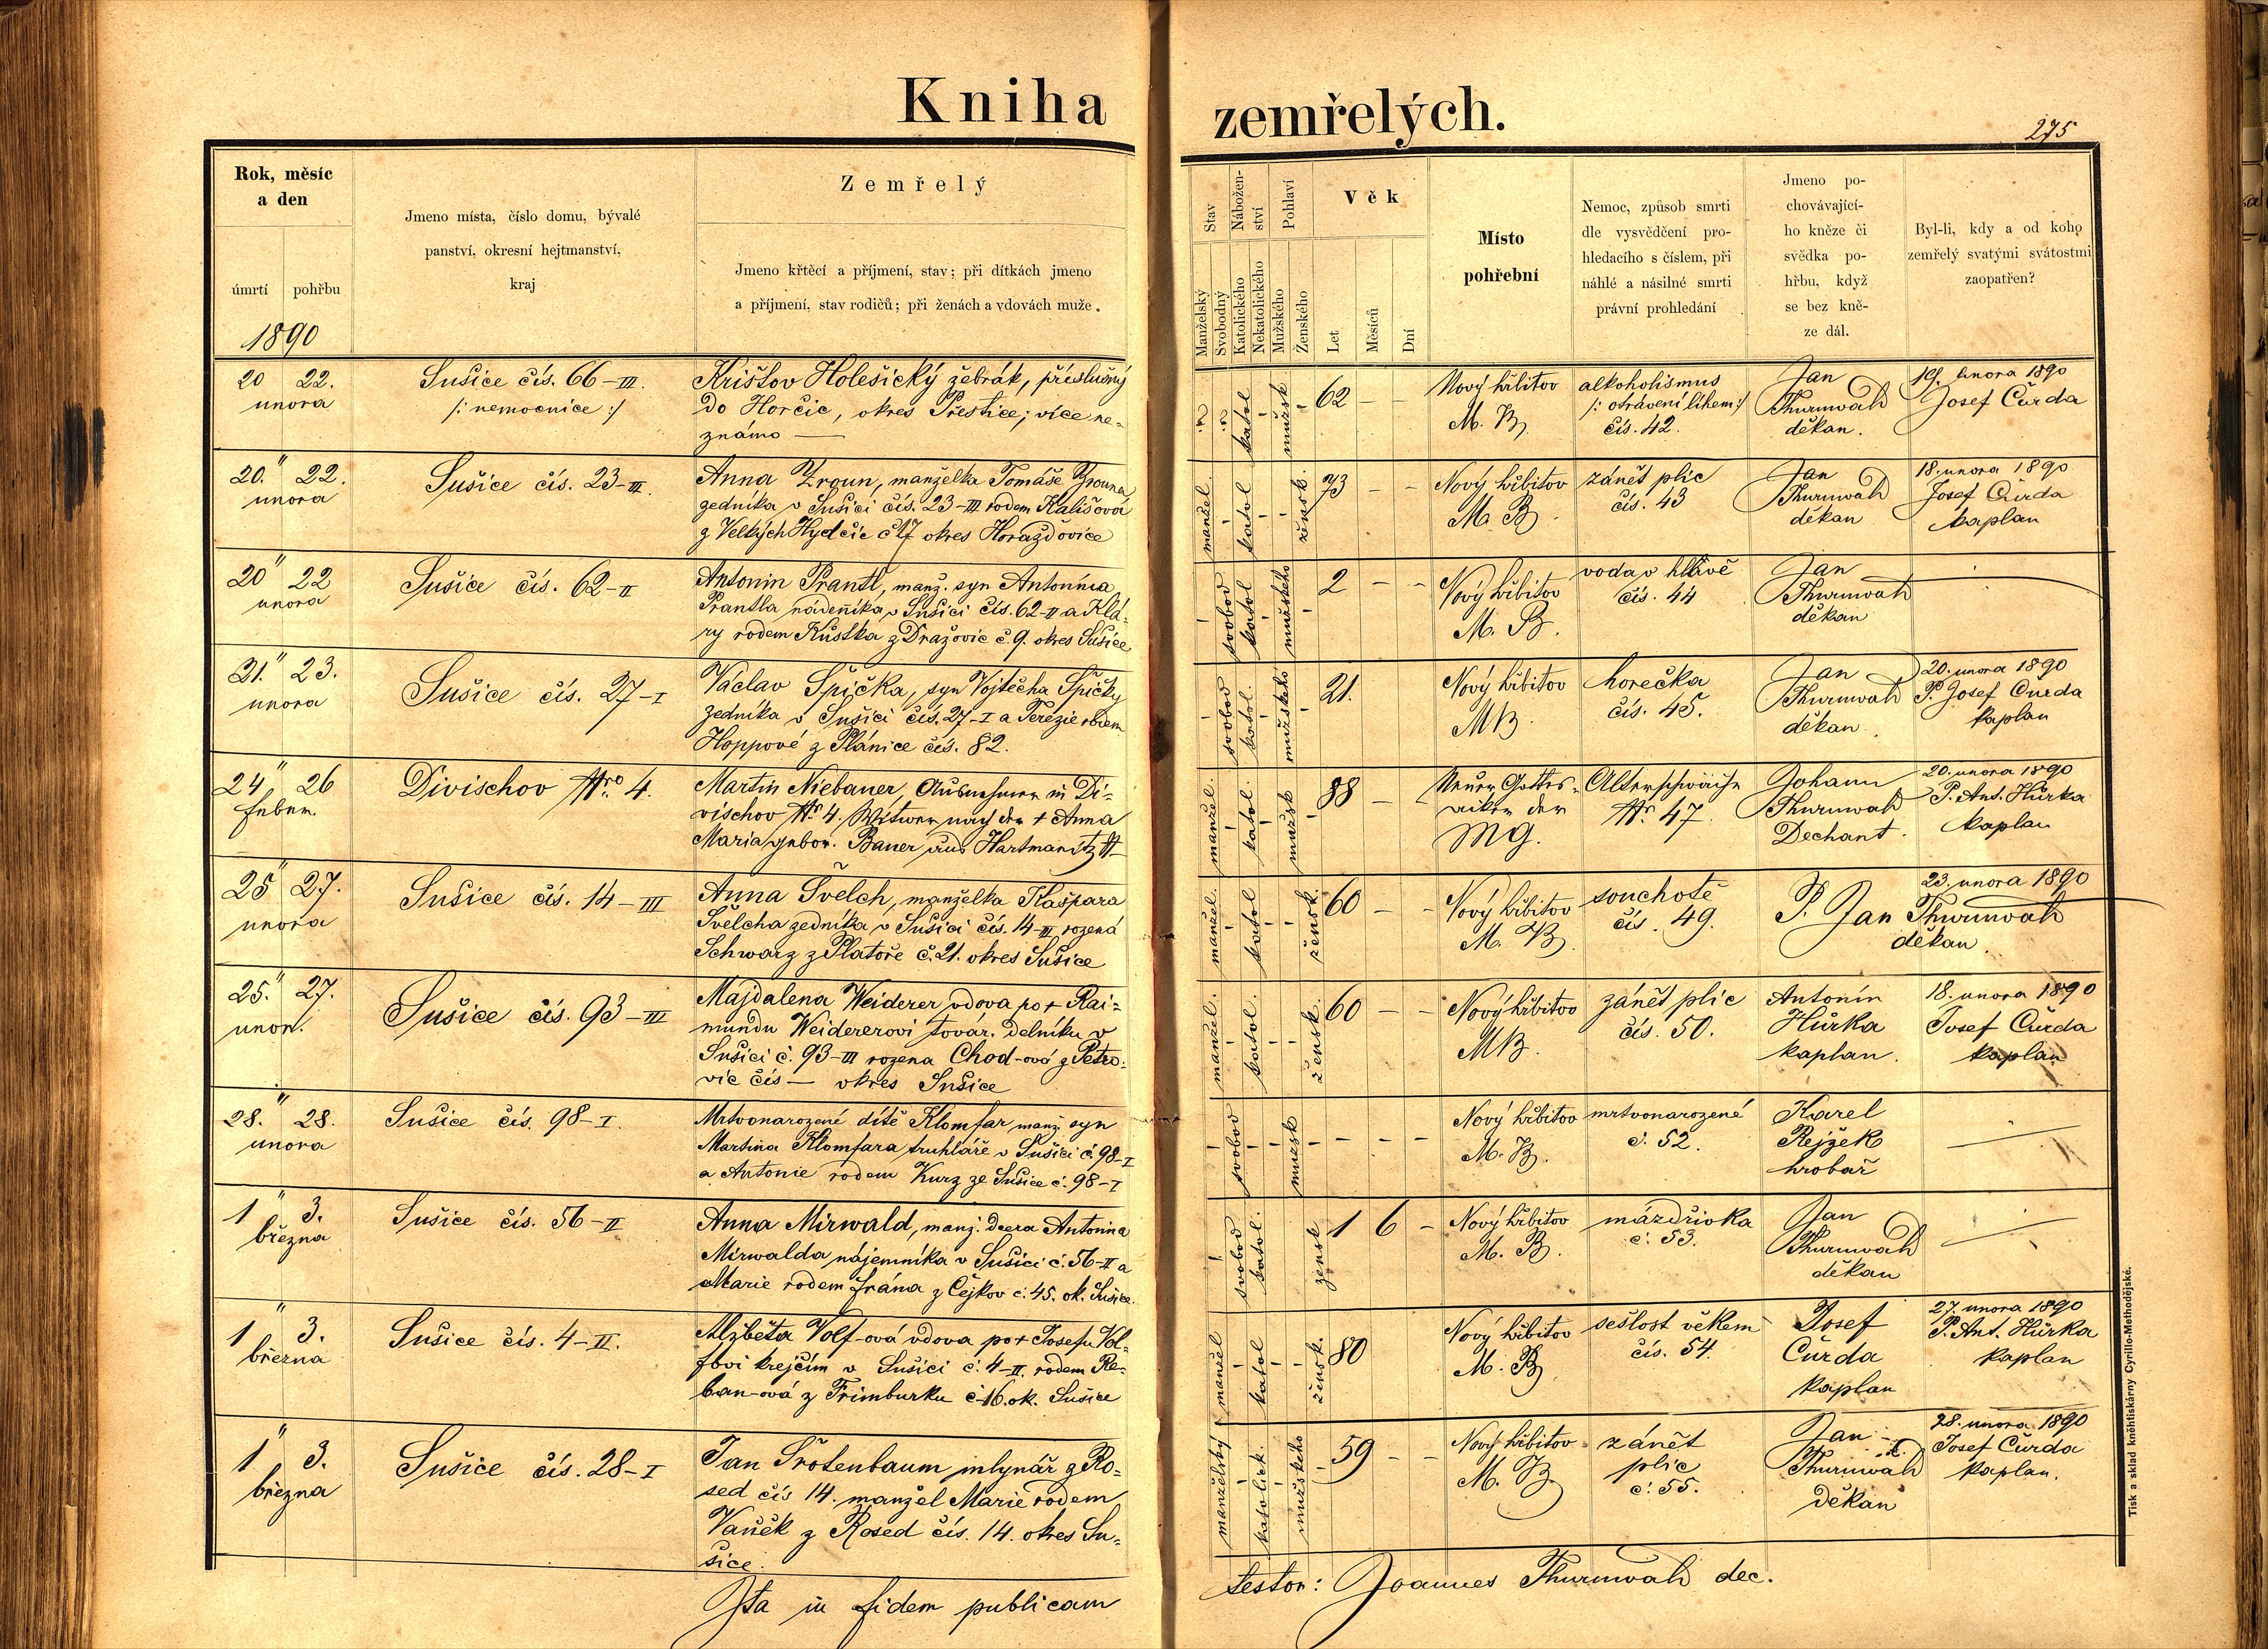 Kniha zemřelých.
275
Rok, měsíc
a den
úmrtí
pohřbu
1890
Jmeno místa, číslo domu, bývalé
panství, okresní hejtmanství,
kraj
Zemřelý
Jmeno křtěcí a příjmení, stav; při dítkách jmeno
a příjmení, stav rodičů; při ženách a vdovách muže.
Stav
Manželský
Svobodný
Nábožen-
ství
Katolického
Nekatolického
Pohlaví
Mužského
Ženského
Věk
Let
Měsíců
Dní
Místo
pohřební
Nemoc, způsob smrti
dle vysvědčení pro-
hledacího s číslem, při
náhlé a násilné smrti
právní prohledání
Jmeno po-
chovávající-
ho kněze či
svědka po-
hřbu, když
se bez kně-
ze dál.
Byl-li, kdy a od koho
zemřelý svatými svátostmi
zaopatřen?
20 22.
unora
Sušice čís. 66-III.
/: nemocnice :/
Krištov Holešický žebrák, příslušný
do Horčic, okres Přestice; více ne-
známo —
? ?
katol
mužsk
62 — —
Nový hřbitov
M. B.
alkoholismus
/: otrávení lihem :/
čís. 42.
Jan
Thurnwald
děkan.
19. unora 1890
Josef Čurda
20." 22.
unora
Sušice čís. 23-III.
Anna Zroun, manželka Tomáše Zrouna
zedníka v Sušici čís. 23-III rodem Kališová
z Velkých Hydčic č 17 okres Horažďovice
manžel.
katol
žensk.
73 — —
Nový hřbitov
M. B.
zánět plic
čís. 43
Jan
Thurnwald
děkan
18. unora 1890
Josef Čurda
kaplan
20" 22
unora
Sušice čís. 62-II
Antonin Prantl, manž. syn Antonína
Prantla nádeníka v Sušici čís. 62-II a Klá-
ry rodem Kůstka z Dražovic č 9. okres Sušice
svobod
katol
mužského
2 — —
Nový hřbitov
M. B.
voda v hlavě
čís. 44
Jan
Thurnwald
děkan
21." 23.
unora
Sušice čís. 27-I
Václav Špička, syn Vojtěcha Špičky
zedníka v Sušici čís. 27-I a Terezie rodem
Hoppové z Plánice čís. 82.
svobod
katol.
mužského
21.
Nový hřbitov
MB.
horečka
čís. 45.
Jan
Thurnwald
děkan.
20. unora 1890
P. Josef Čurda
kaplan
24" 26
Febru.
Divischov Nro 4.
Martin Niebauer, Ausnehmer in Di-
vischov Nr. 4. Witwer nach der + Anna
Maria gebor. Bauer aus Hartmanitz N—
manžel.
katol.
mužsk
88 —
Neuer Gottes-
acker der
MG.
Altersschwäche
Nr. 47.
Johann
Thurnwald
Dechant.
20. unora 1890
P. Ant. Hůrka
kaplan
25" 27.
unora
Sušice čís. 14-III
Anna Švelch, manželka Kašpara
Švelcha zedníka v Sušici čís. 14-III rozená
Schwarz z Platoře č. 21. okres Sušice
manžel.
katol
žensk.
60 — —
Nový hřbitov
M. B.
souchotě
čís. 49.
23. unora 1890
P. Jan Thurnwald
děkan.
25." 27.
unor.
Sušice čís. 93-III
Majdalena Weiderer vdova po + Rai-
mundu Weidererovi továr. delníku v
Sušici č. 93-III rozena Chod-ová z Petro-
vic čís — okres Sušice
manžel.
katol.
žensk.
60 — —
Nový hřbitov
MB.
zánět plic
čís. 50.
Antonín
Hůrka
kaplan.
18. unora 1890
Josef Čurda
kaplan
28." 28.
unora
Sušice čís. 98-I.
Mrtvonarozené dítě Klomfar manž. syn
Martina Klomfara truhláře v Sušici č. 98-I
a Antonie rodem Kurz ze Sušice č. 98-I
svobod
mužsk
— — —
Nový hřbitov
M. B.
mrtvonarozené
č. 52.
Karel
Rejžek
hrobař
1" 3.
března
Sušice čís. 56-II
Anna Mirwald, manž. dcera Antonína
Mirwalda nájemníka v Sušici č. 56-II a
Marie rodem Frána z Čejkov č. 45. ok. Sušice.
svobod
katol.
žensk
1 6 —
Nový hřbitov
M. B.
mázdřivka
č. 53.
Jan
Thurnwald
děkan
1" 3.
března
Sušice čís. 4-II.
Alžběta Volf-ová vdova po + Josefu Vol-
fovi krejčím v Sušici č. 4-II. rodem Re-
ban-ová z Frimburku č 16. ok. Sušice
manžel
katol
žensk.
80
Nový hřbitov
M. B.
sešlost věkem
čís. 54.
Josef
Čurda
kaplan
27. unora 1890
P. Ant. Hůrka
kaplan
1" 3.
března
Sušice čís. 28-I
Jan Šrotenbaum mlynář z Ro-
sed čís 14. manžel Marie rodem
Vaněk z Rosed čís. 14. okres Su-
šice.
manželský
katolick.
mužského
59 — —
Nový hřbitov
M. B.
zánět
plic
č. 55.
Jan
Thurnwald
děkan
28. unora 1890
Josef Čurda
kaplan.
Ita in fidem publicam testor: Joannes Thurnwald dec.
Tisk a sklad kněhtiskárny Cyrillo-Methodějské.